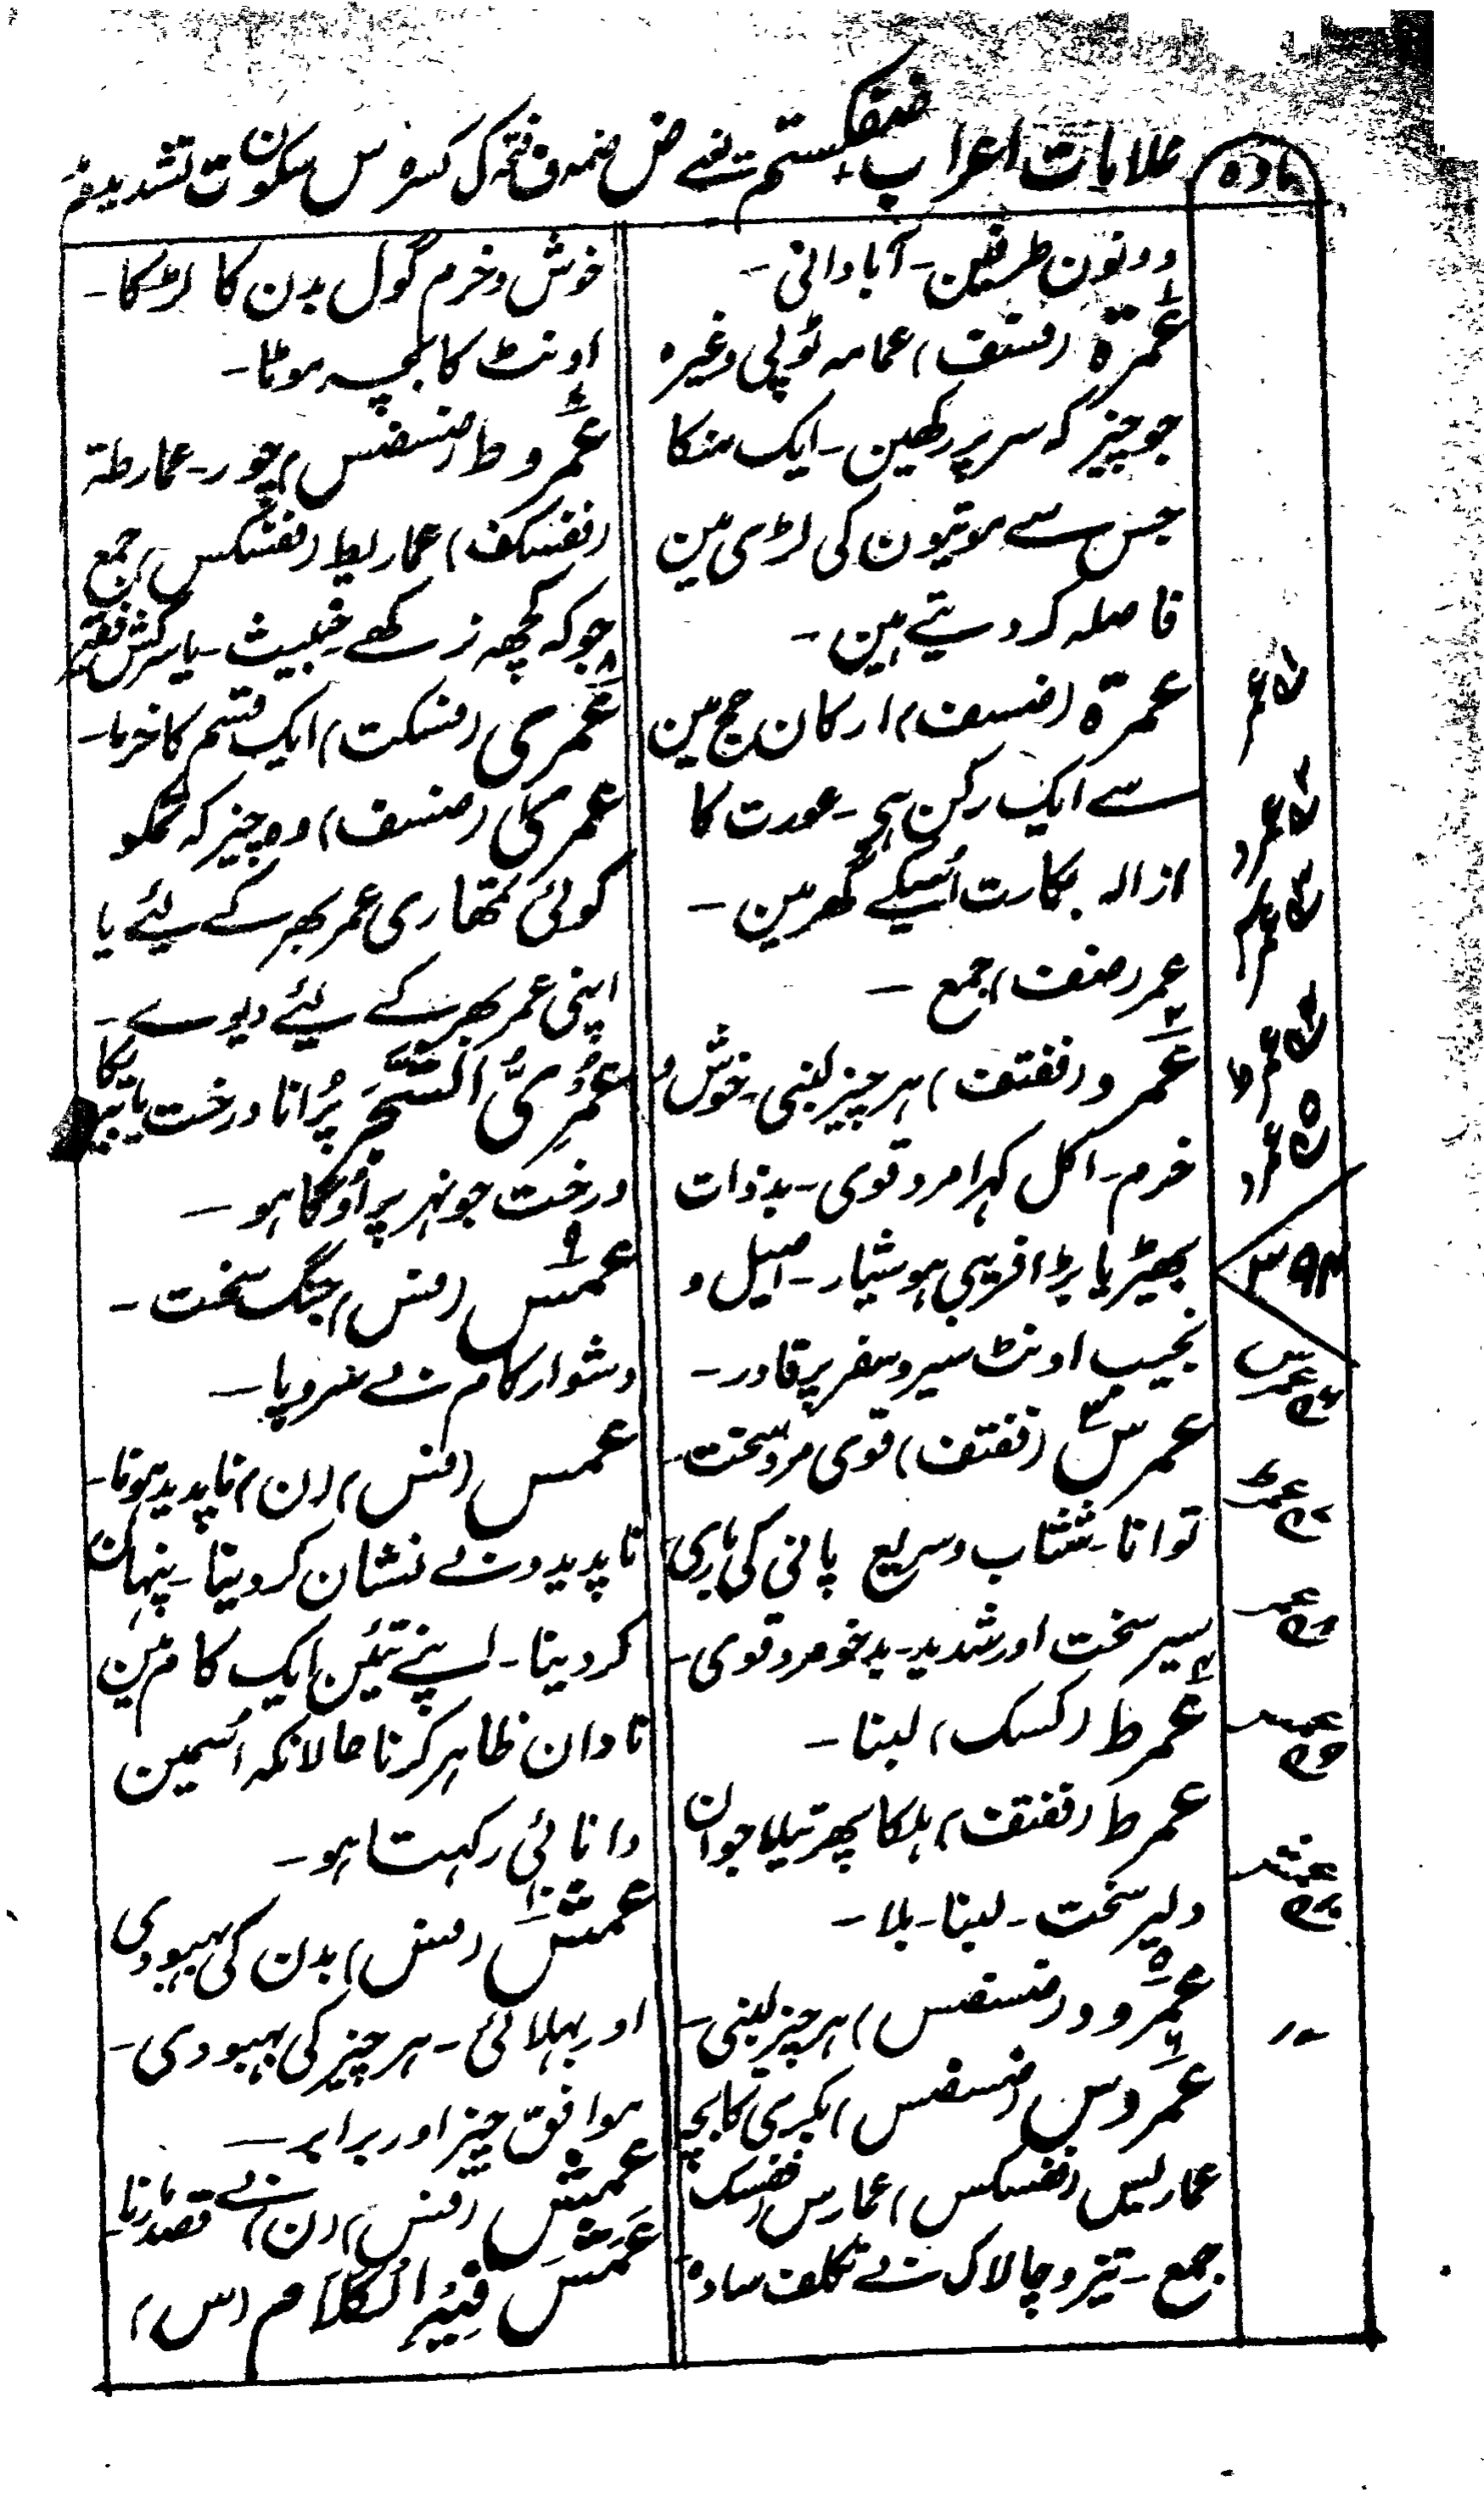 مادہ
علامات اعراب ضفکستم یعنے ض ضمہ ف فتحہ ک کسرہ س سکون ت تشدید م
دونون طرفین۔ آبادانی۔
عمرة (فسف) عمامہ ٹوپی وغیرہ
جو چیز کہ سر پر رکھین۔ ایک منکا
جس سے موتیون کی لڑی مین
فاصلہ کر دیتے ہین۔
عمرة (ضسف) ارکان حج مین
سے ایک رکن ہی۔ عورت کا
ازالہ بکارت اُسیکے گھر مین۔
عمر (ضف) جمع۔
عمرد (ففتف) ہر چیز لنبی۔ خوش و
خرم۔ اکل کہرا مرد قوی۔ بدذات
بھیڑیا بڑا فریبی ہوشیار۔ اصیل و
نجیب اونٹ سیر و سفر پر قادر۔
عمرس (ففتف) قوی مرد سخت۔
توانا۔ شتاب و سریع پانی کی باری
سیر سخت اور شدید۔ بدخو مرد قوی۔
عمرط (کسک) لبنا۔
عمرط (ففتف) ہلکا پھرتیلا جوان
دلیر سخت۔ لبنا۔ بلا۔
عمرود (ضسضس) ہر چیز لنبی۔
عمروس (ضسضس) بکری کا بچہ
عماریس (ففسکس) عمارس (ففسک
جمع۔ تیز و چالاک بے تکلف سادہ
خوش و خرم گول بدن کا لڑکا۔
اونٹ کا بچہ موٹا۔
عمروط (ضسضس) چور۔ عمارطة
(ففسکف) عماریط (ففسکس) جمع
جو کہ کچھ نرکھے خبیث۔ یا سرکش فقیر
عمری (فسکت) ایک قسم کا خرما۔
عمرىٰ (ضسف) وہ چیز کہ تمکو
کوئی تمھاری عمر بھر کے لیئے یا
اپنی عمر بھر کے لیئے دیوے۔
عُمْرِیُّ الشَّجَر پُرانا درخت یا بیر کا
درخت جو نہر پر اوگا ہو۔
عمس (فس) جنگ سخت۔
دشوار کام بے سروپا۔
عمس (فس) (ن) ناپدید ہونا۔
ناپدید و بے نشان کر دینا۔ پنہان
کر دینا۔ اپنے تئین ایک کام مین
نادان ظاہر کرنا حالانکہ اُسمین
دانائی رکہتا ہو۔
عمش (فس) بدن کی بہبودی
اور بہلائی۔ ہر چیز کی بہبودی۔
موافق چیز اور برابر۔
عمش (فس) (ن) بے قصد مارنا۔
عَمَشَ فِیْہِ الْکَلَامُ (س)
۳۹۴
عمرس
عمرط
عمر
عمس
عمش